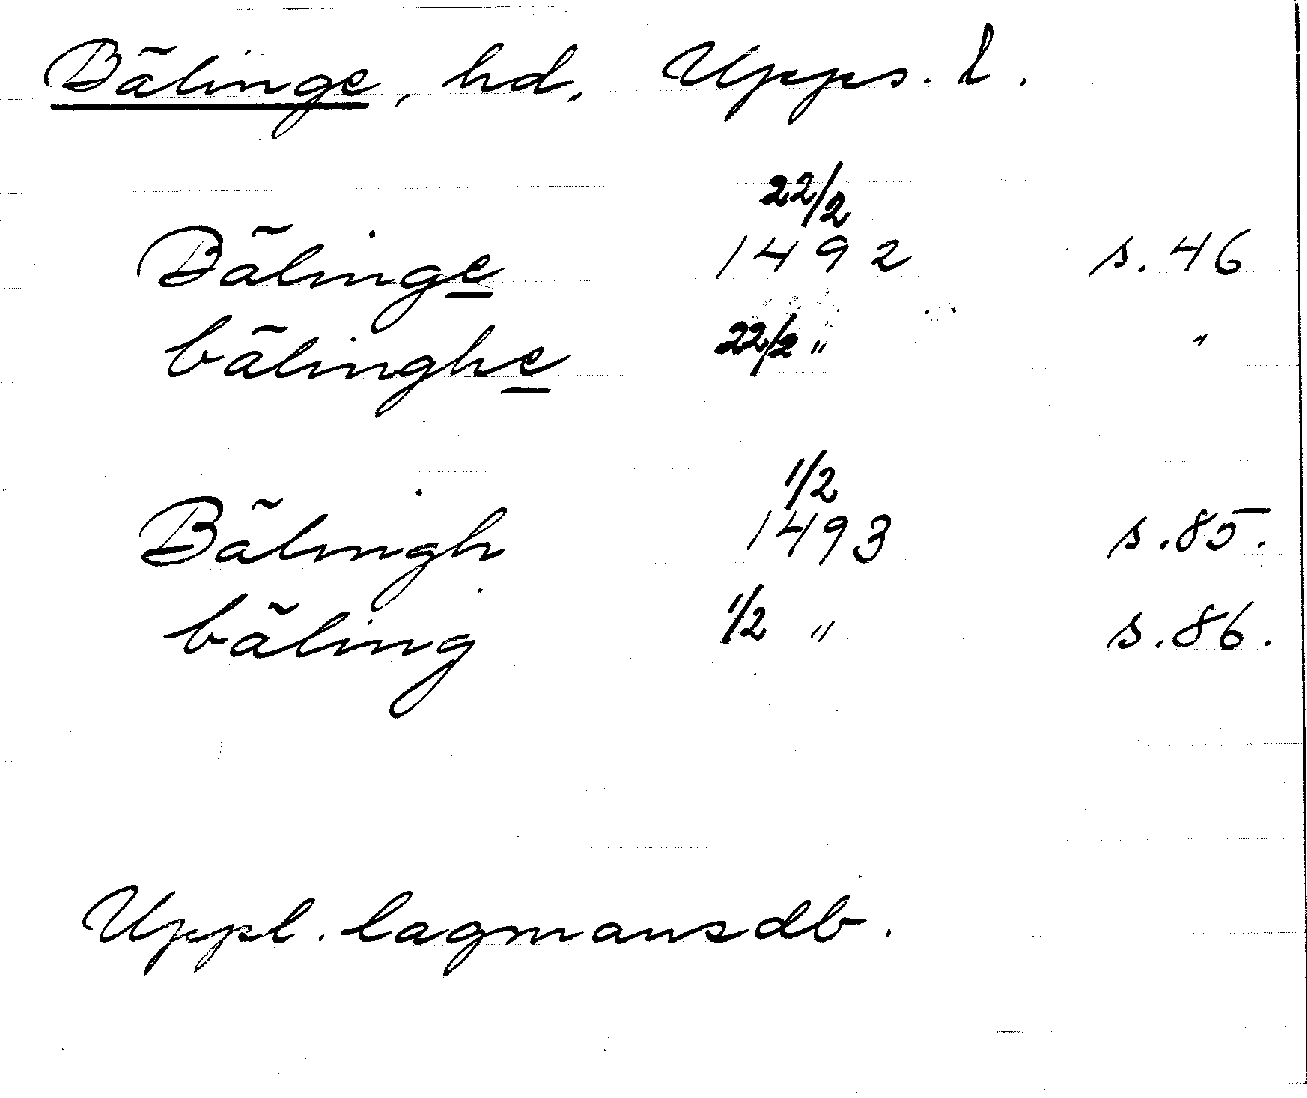 Bälinge, hd, Upps. l.
22/2
Bälinge 1492 s. 46
bälinghe 22/2 " "
1/2
Bälingh 1493 s. 85.
bäling 1/2 " s. 86.
Uppl. lagmansdb.